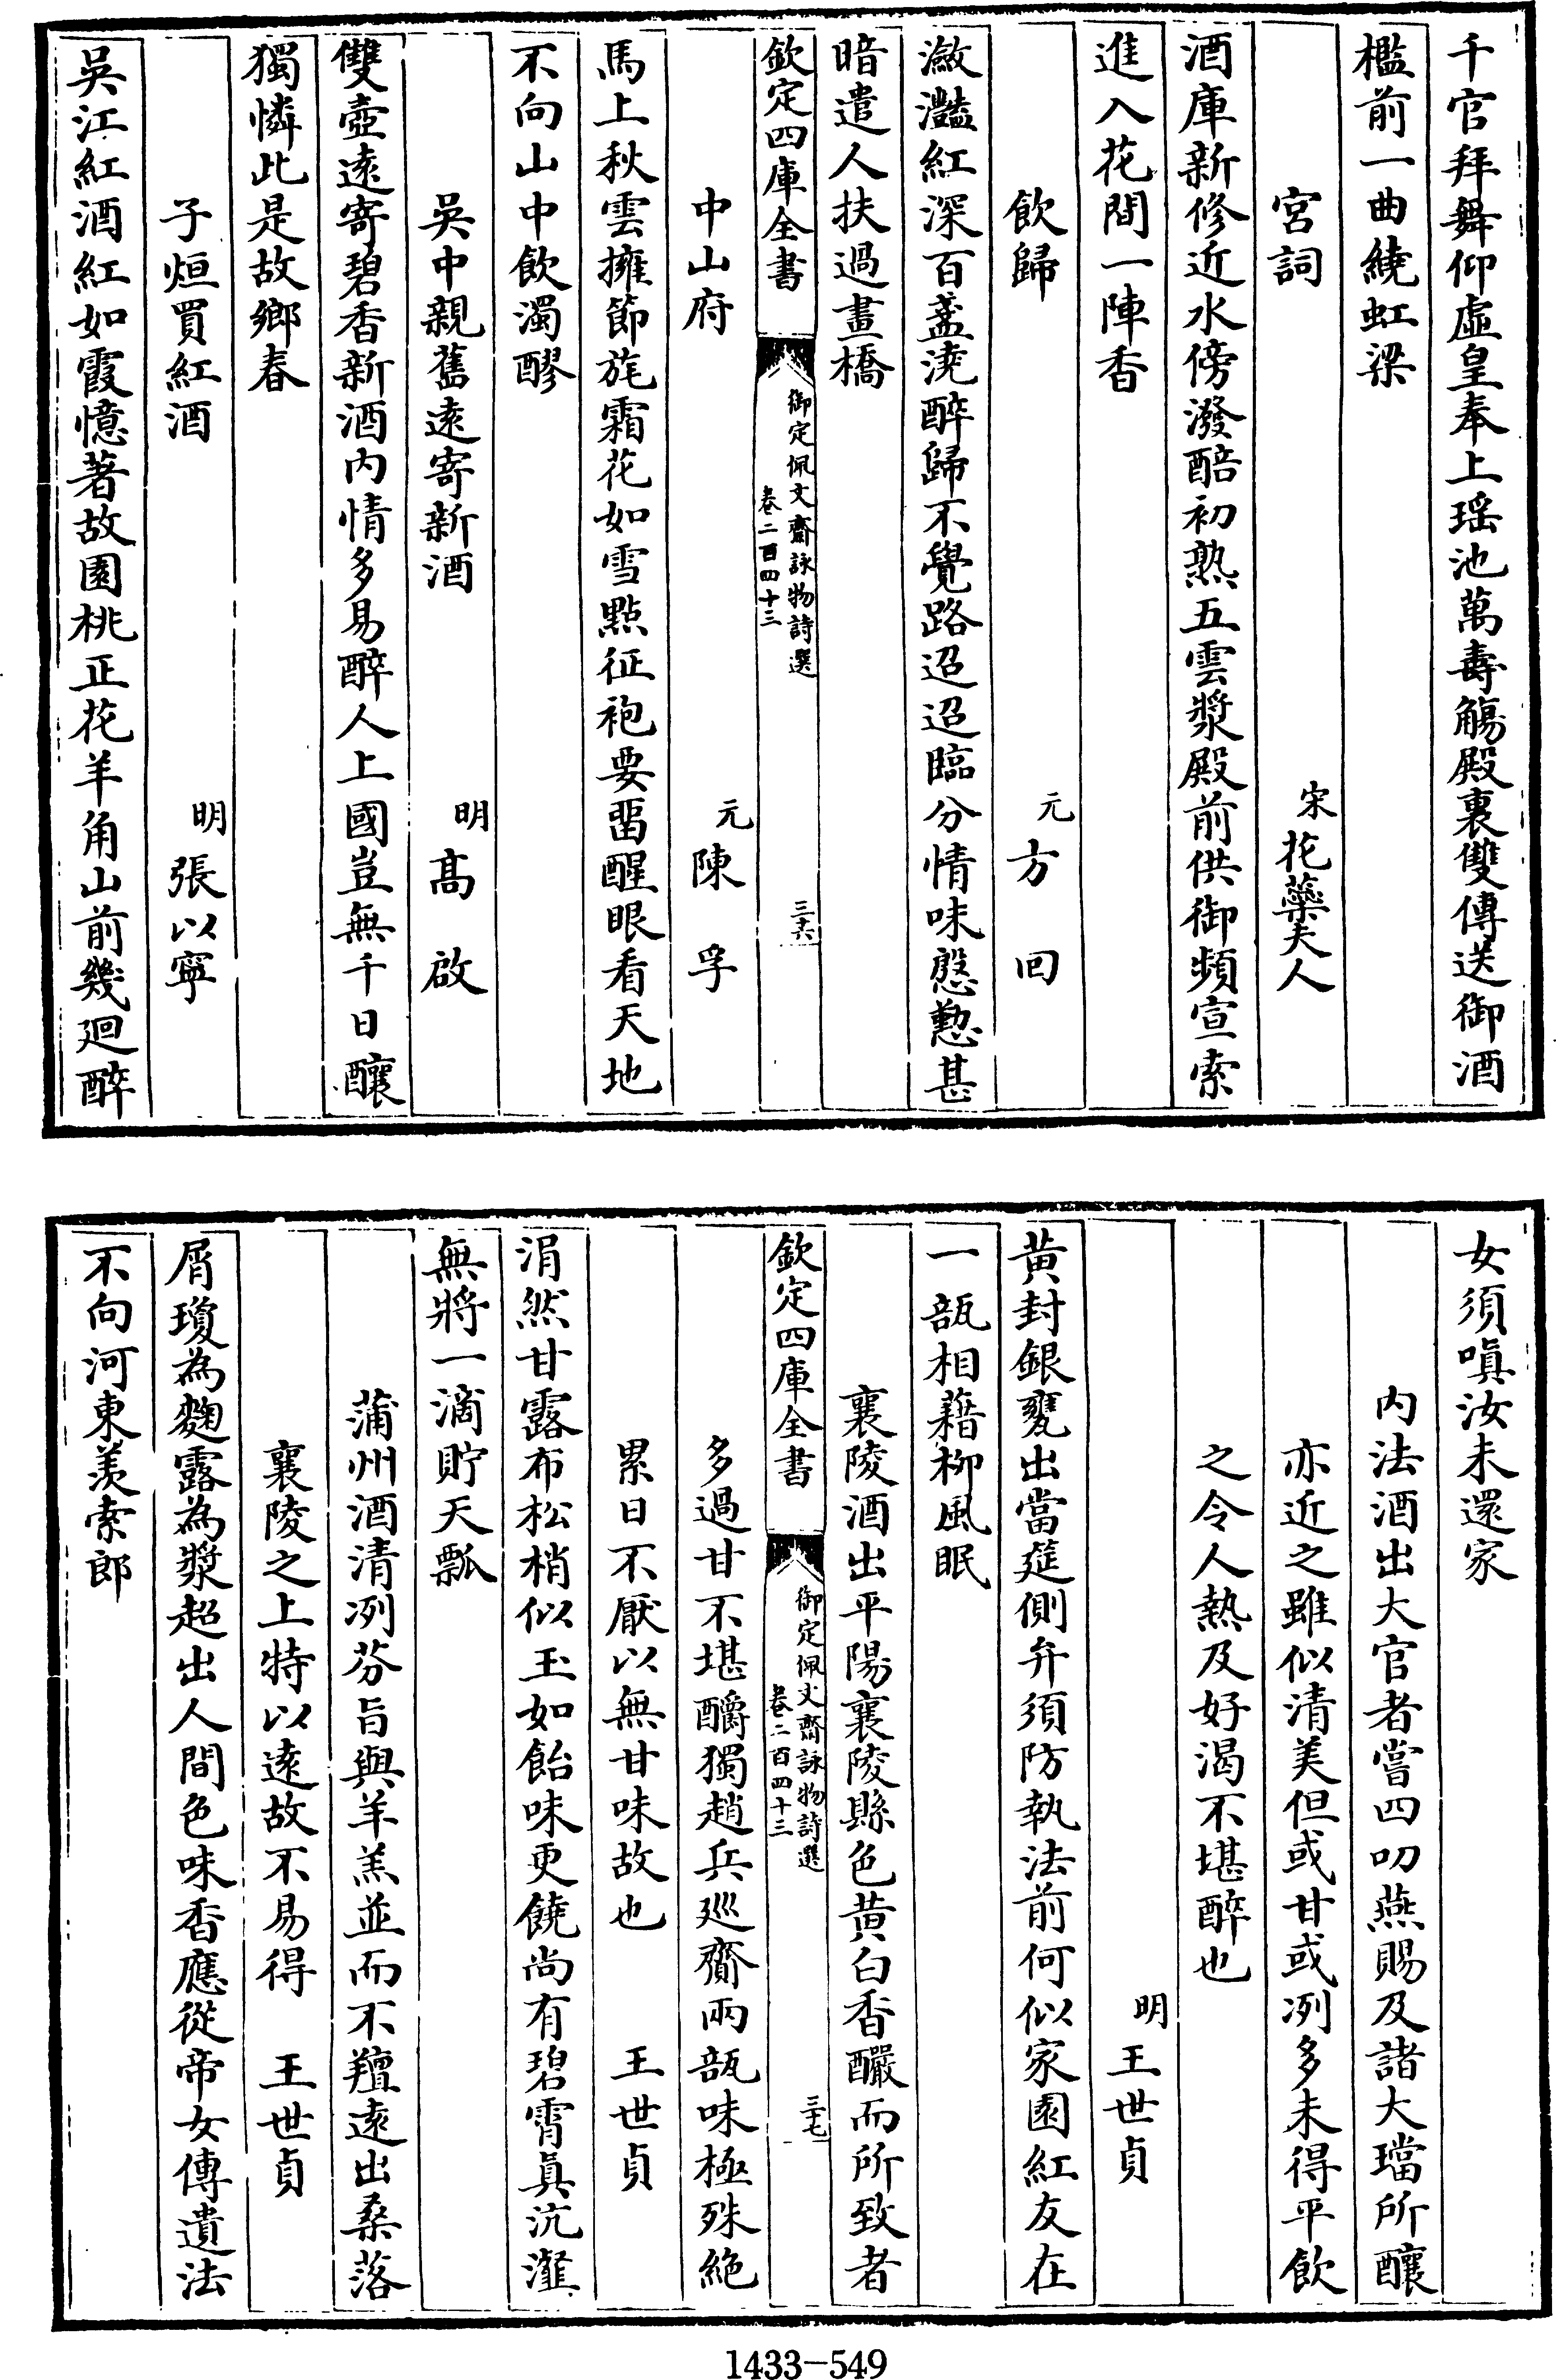 千官拜舞仰虛皇奉上瑤池萬壽觴殿裏雙傳送御酒
檻前一曲繞虹梁
宮詞 宋花蘂夫人
酒庫新修近水傍潑醅初熟五雲漿殿前供御頻宣索
進入花間一陣香
飲歸 元方回
瀲灩紅深百盞澆醉歸不覺路迢迢臨分情味慇懃甚
暗遣人扶過畫橋
欽定四庫全書 御定佩文齋詠物詩選 卷二百四十三 三六
中山府 元陳孚
馬上秋雲擁節旄霜花如雪點征袍要畱醒眼看天地
不向山中飲濁醪
吳中親舊遠寄新酒 明高啟
雙壺遠寄碧香新酒内情多易醉人上國豈無千日釀
獨憐此是故鄉春
子烜買紅酒 明張以寧
吳江紅酒紅如霞憶著故園桃正花羊角山前幾廻醉
女須嗔汝未還家
内法酒出大官者嘗四叨燕賜及諸大璫所釀
亦近之雖似清美但或甘或冽多未得平飲
之令人熱及好渴不堪醉也
明王世貞
黄封銀甕出當筵側弁須防執法前何似家園紅友在
一瓿相藉柳風眠
襄陵酒出平陽襄陵縣色黄白香釅而所致者
欽定四庫全書 御定佩文齋詠物詩選 卷二百四十三 三七
多過甘不堪釂獨趙兵巡齎兩瓿味極殊絶
累日不厭以無甘味故也 王世貞
涓然甘露布松梢似玉如飴味更饒尚有碧霄真沆瀣
無將一滴貯天瓢
蒲州酒清冽芬旨與羊羔並而不羶遠出桑落
襄陵之上特以遠故不易得 王世貞
屑瓊為麴露為漿超出人間色味香應從帝女傳遺法
不向河東羨索郎
1433-549